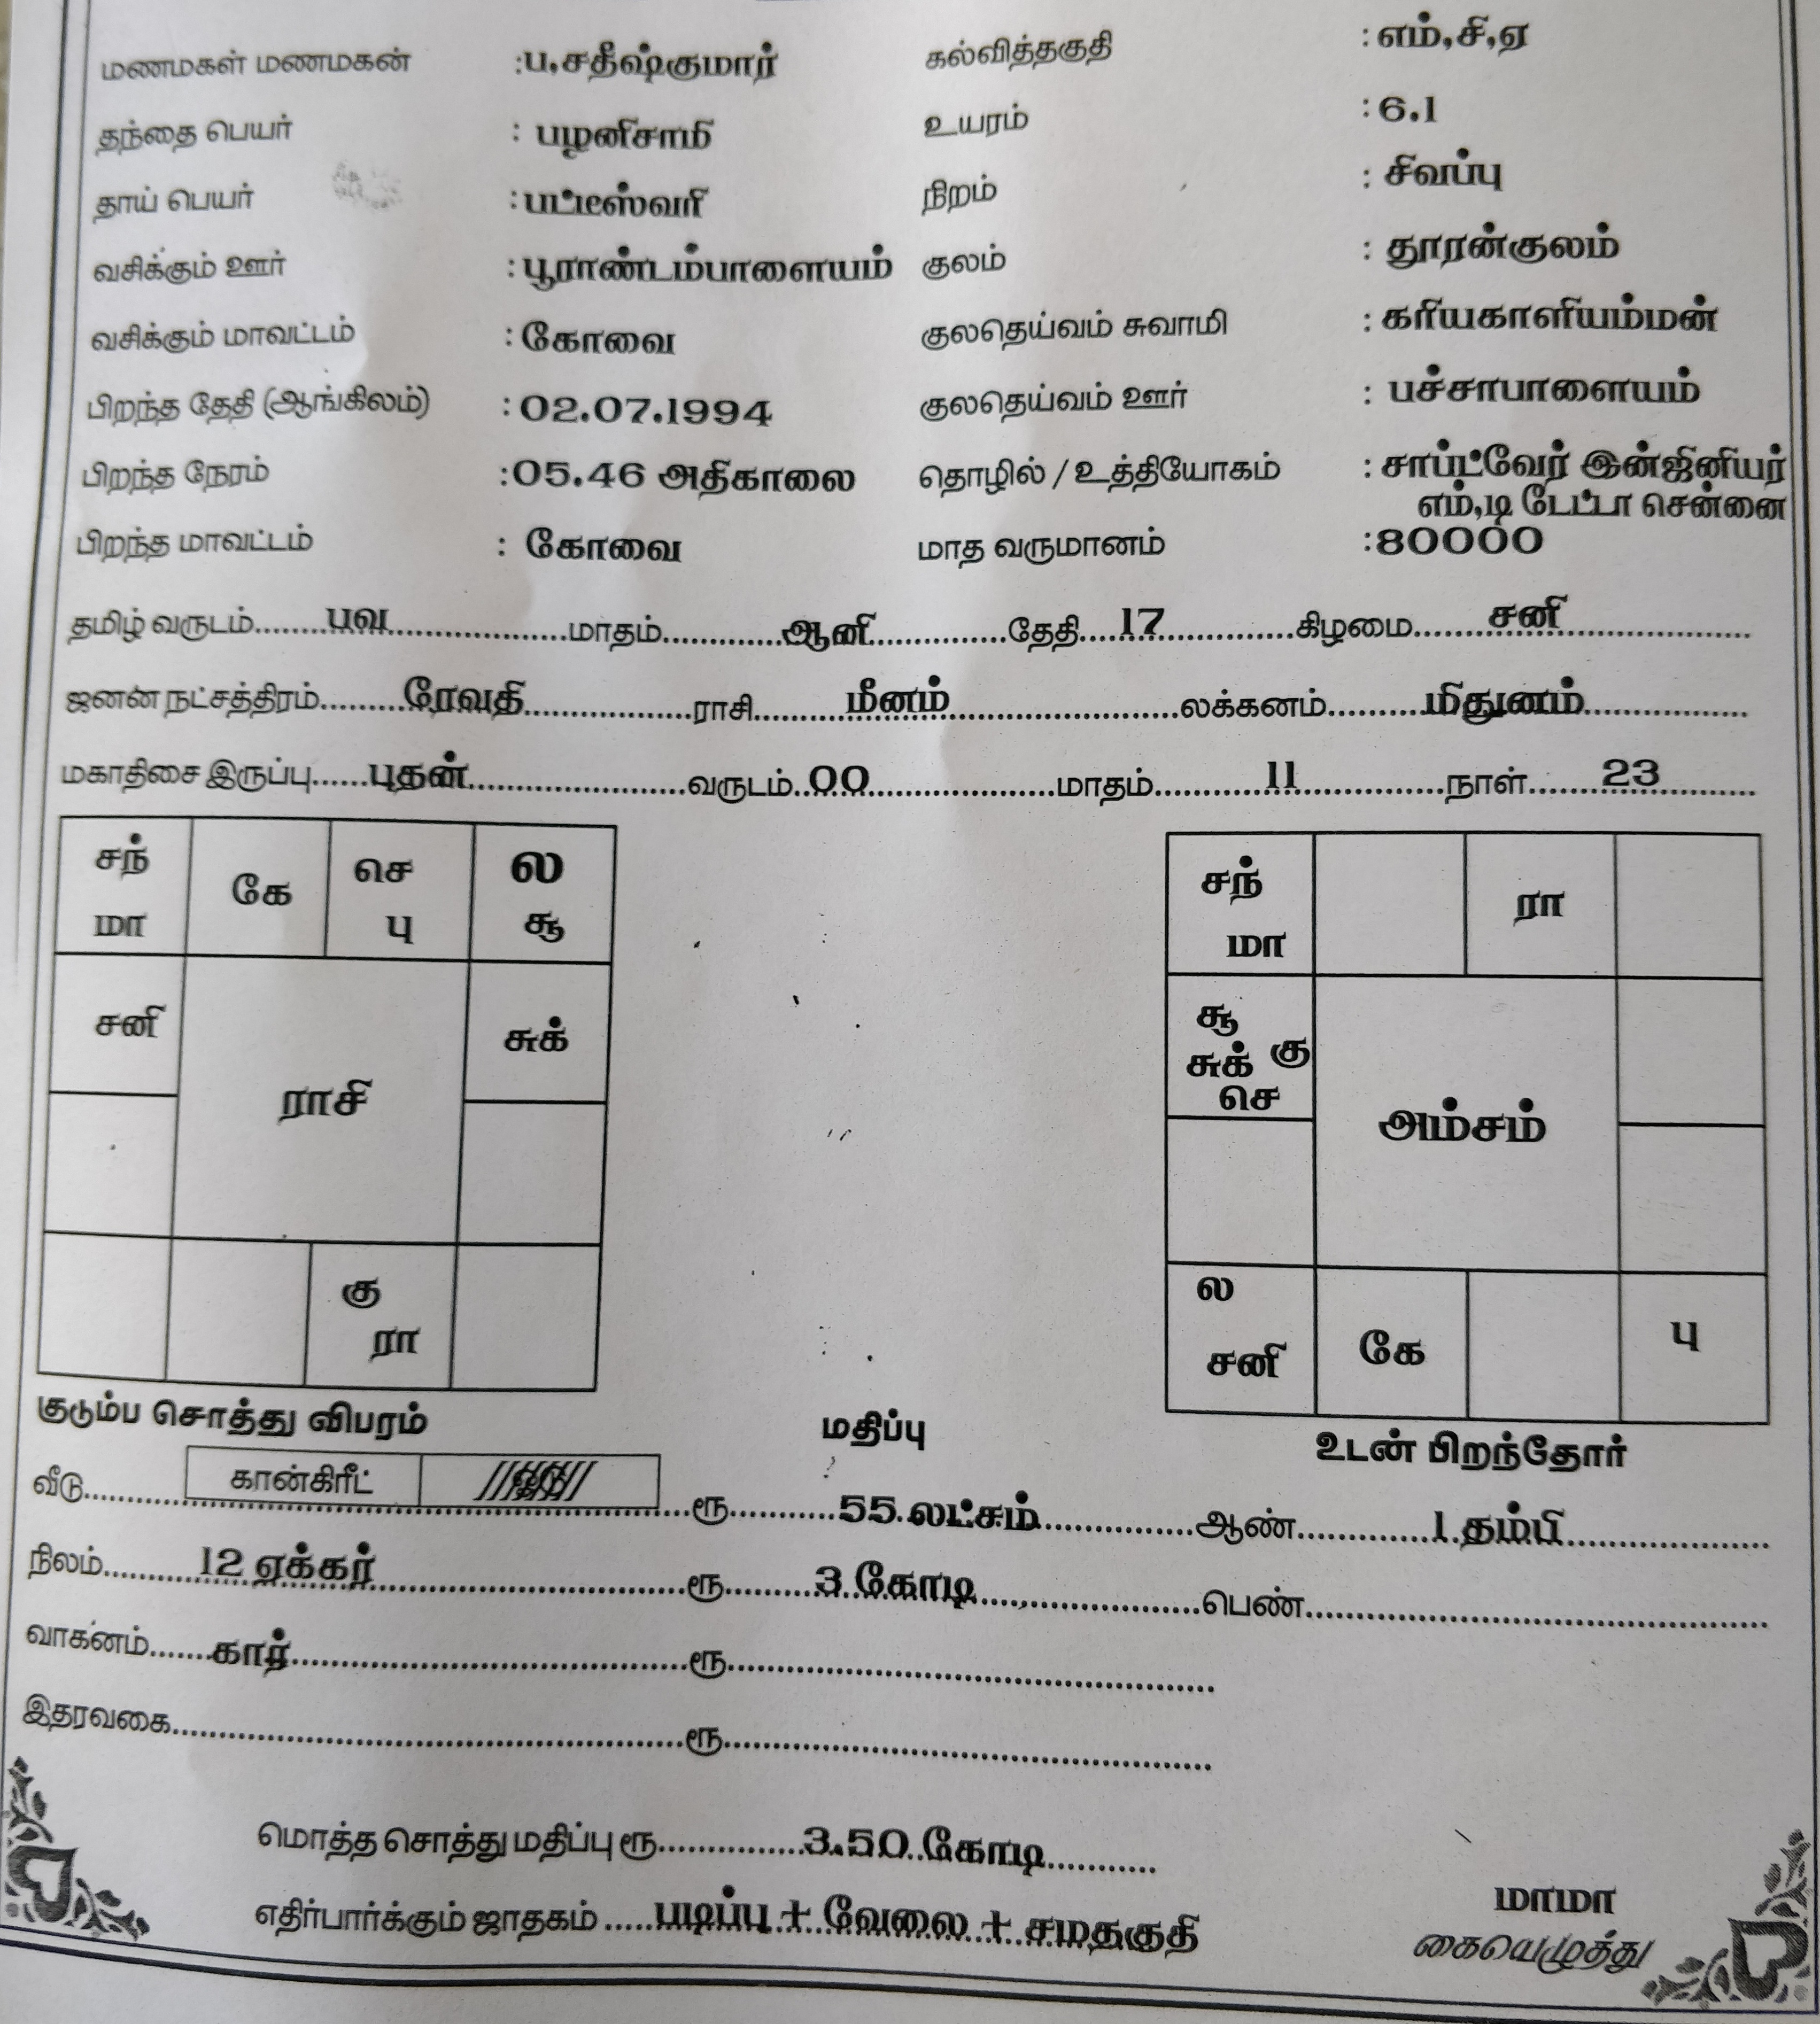 மணமகள் மணமகன் :ப.சதீஷ்குமார் கல்வித்தகுதி :எம்,சி,ஏ
தந்தை பெயர் : பழனிசாமி உயரம் :6.1
தாய் பெயர் :பட்டீஸ்வரி நிறம் : சிவப்பு
வசிக்கும் ஊர் :பூராண்டம்பாளையம் குலம் : தூரன்குலம்
வசிக்கும் மாவட்டம் :கோவை குலதெய்வம் சுவாமி :கரியகாளியம்மன்
பிறந்த தேதி (ஆங்கிலம்) :02.07.1994 குலதெய்வம் ஊர் : பச்சாபாளையம்
பிறந்த நேரம் :05.46 அதிகாலை தொழில் / உத்தியோகம் :சாப்ட்வேர் இன்ஜினியர்
எம்,டி டேட்டா சென்னை
பிறந்த மாவட்டம் : கோவை மாத வருமானம் :80000
தமிழ் வருடம்......பவ......மாதம்......ஆனி......தேதி......17......கிழமை......சனி......
ஜனன நட்சத்திரம்......ரேவதி......ராசி......மீனம்......லக்கனம்......மிதுனம்......
மகாதிசை இருப்பு......புதன்......வருடம்..00......மாதம்......11......நாள்......23......
சந் மா
கே
செ பு
ல சூ
சனி
ராசி
சுக்
கு ரா
சந் மா
ரா
சூ
சுக் கு
செ
அம்சம்
ல
சனி
கே
பு
குடும்ப சொத்து விபரம் மதிப்பு உடன் பிறந்தோர்
வீடு...... கான்கிரீட் ......ரூ......55 லட்சம்......ஆண்......1 தம்பி......
நிலம்......12 ஏக்கர்......ரூ......3 கோடி......பெண்......
வாகனம்......கார்......ரூ......
இதரவகை......ரூ......
மொத்த சொத்து மதிப்பு ரூ......3.50 கோடி......
எதிர்பார்க்கும் ஜாதகம் ......படிப்பு + வேலை + சமதகுதி
மாமா
கையெழுத்து